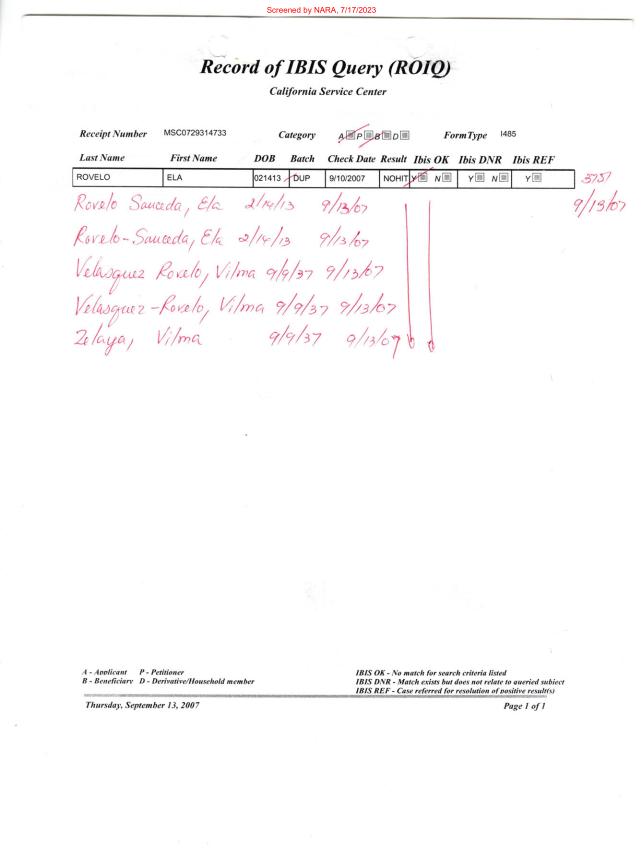 Screened by NARA, 7/17/2023
Record of IBIS Query (ROIQ)
California Service Center
Receipt Number MSC0729314733 Category A P B D Form Type I485
Last Name First Name DOB Batch Check Date Result Ibis OK Ibis DNR Ibis REF
ROVELO ELA 021413 DUP 9/10/2007 NOHIT Y N Y N Y
Rovelo Sauceda, Ela 2/14/13 9/13/07 9/13/07
Rovelo-Sauceda, Ela 2/14/13 9/13/07
Velasquez Rovelo, Vilma 9/9/37 9/13/07
Velasquez-Rovelo, Vilma 9/9/37 9/13/07
Zelaya, Vilma 9/9/37 9/13/07
A - Applicant P - Petitioner IBIS OK - No match for search criteria listed
B - Beneficiary D - Derivative/Household member IBIS DNR - Match exists but does not relate to queried subject
IBIS REF - Case referred for resolution of positive result(s)
Thursday, September 13, 2007 Page 1 of 1